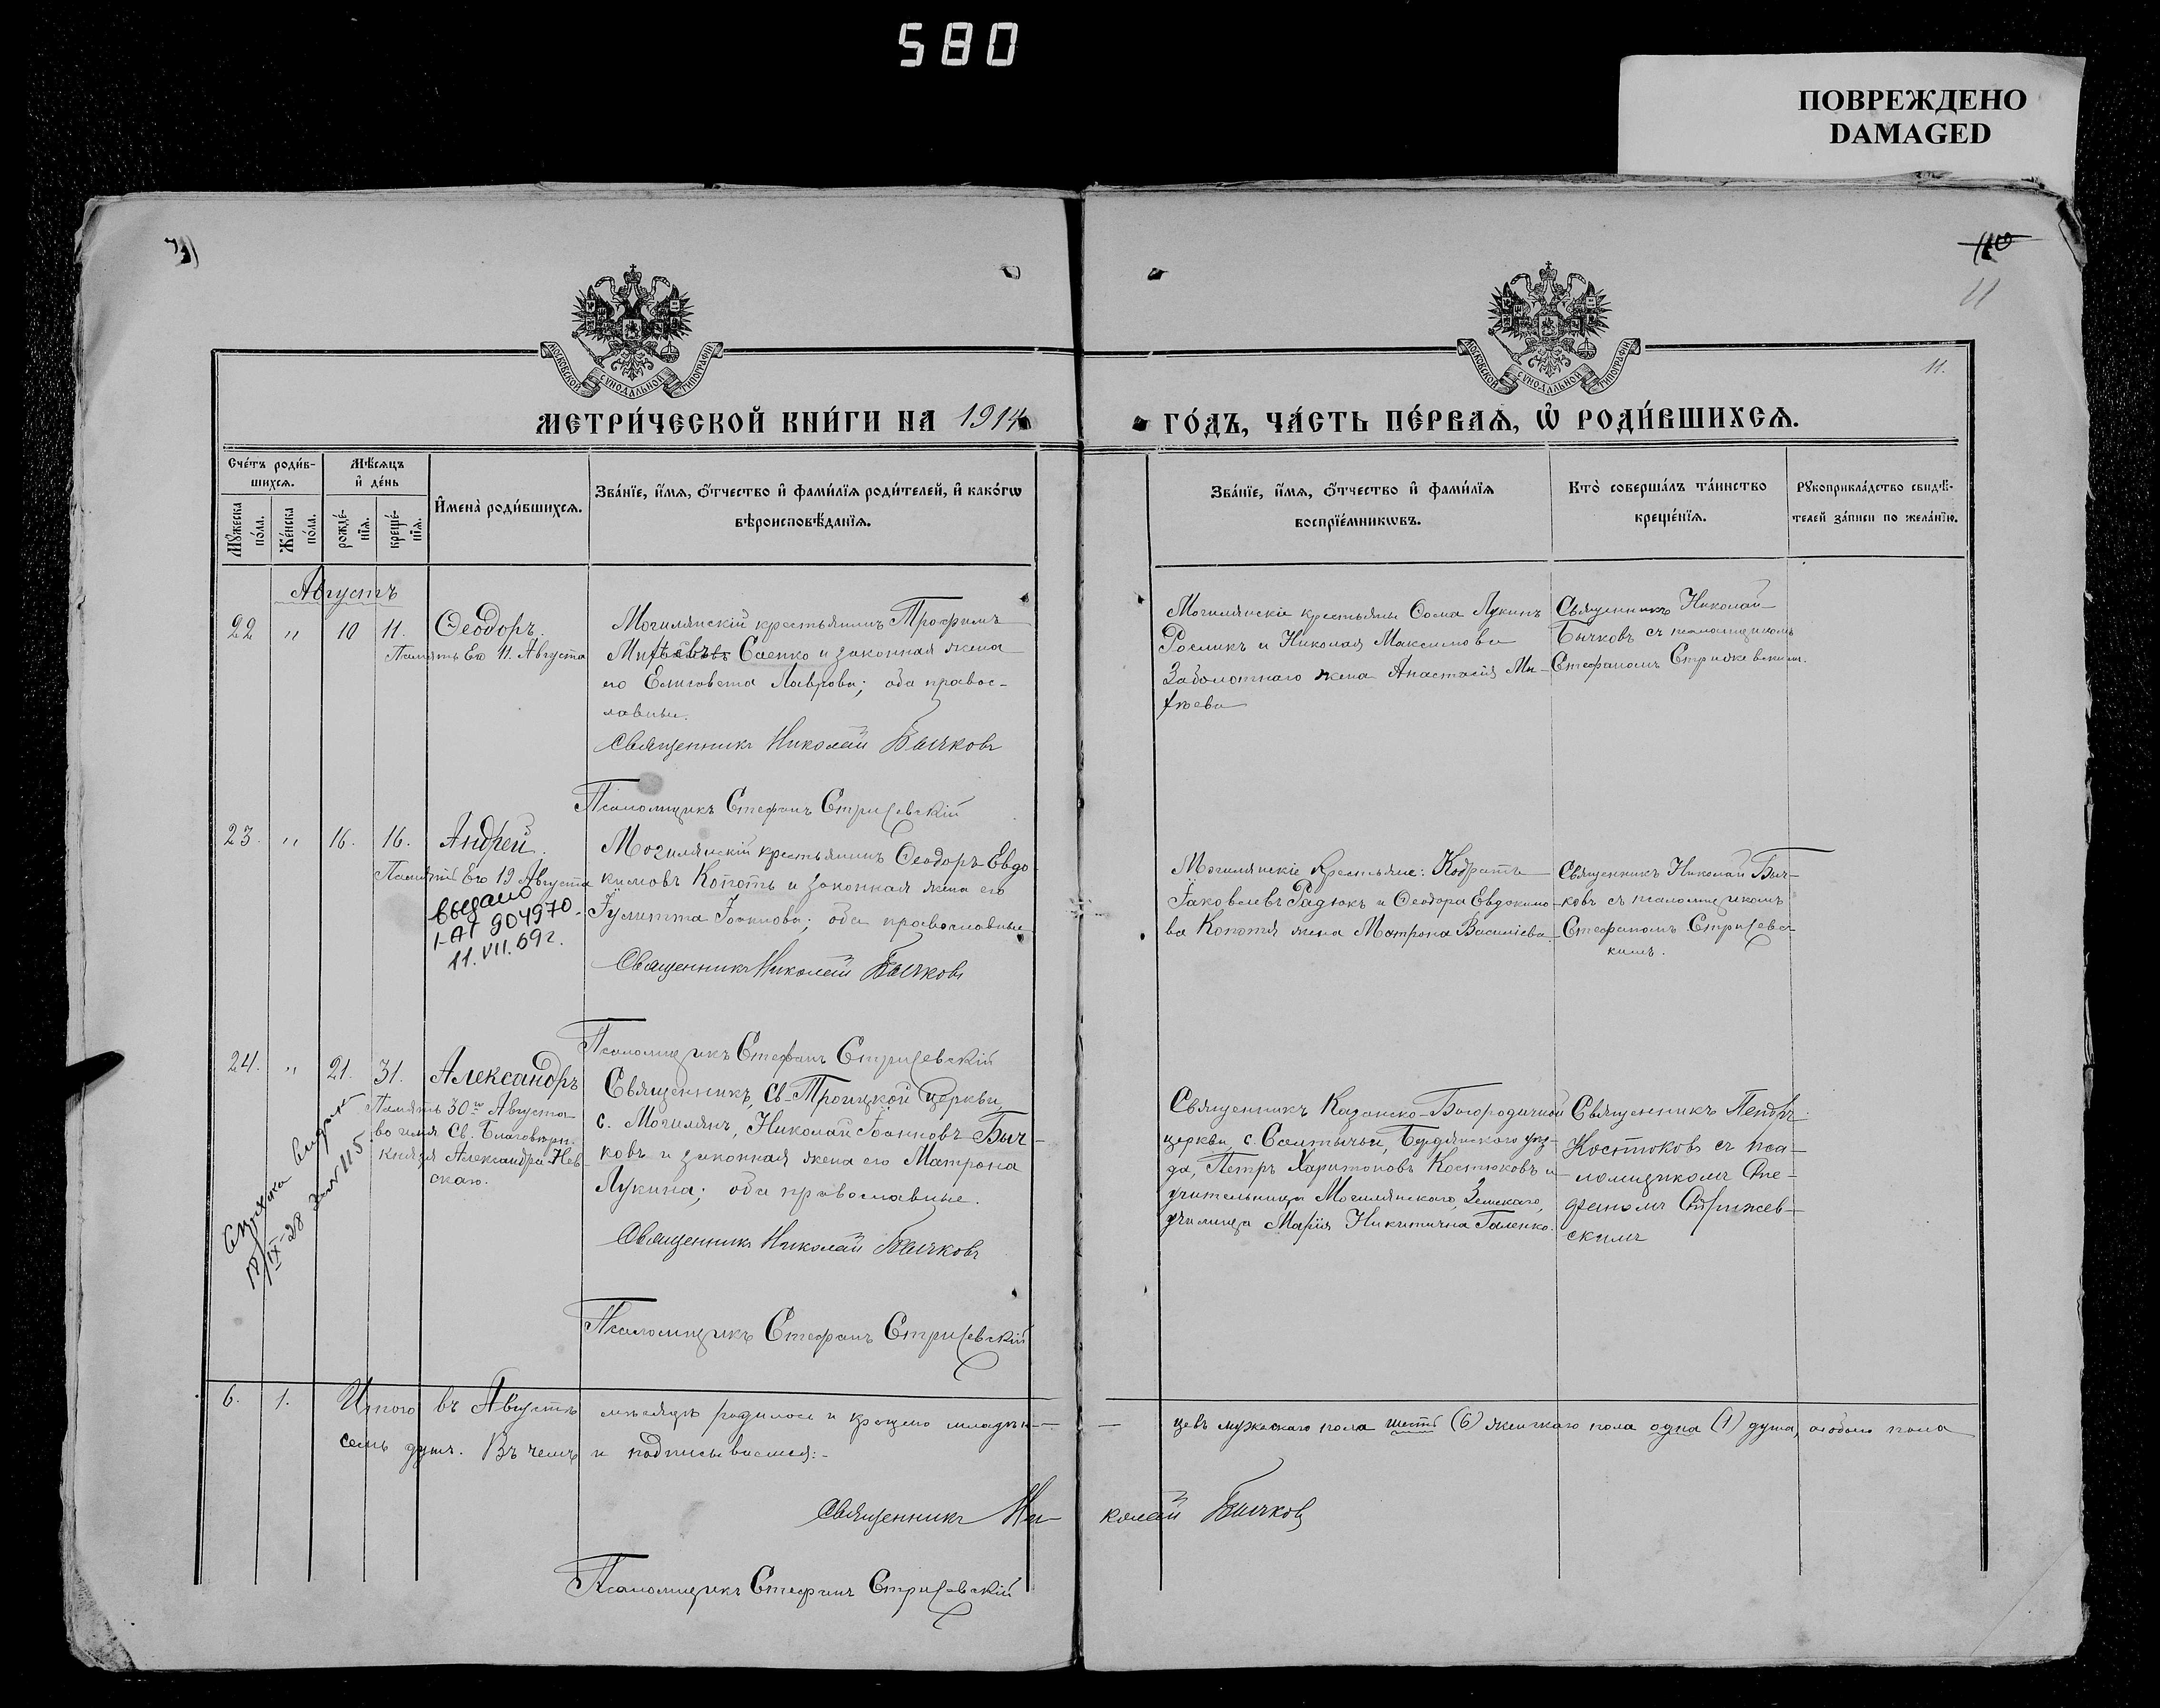 580
ПОВРЕЖДЕНО
DAMAGED
110
11
11.
МОСКОВСКОЙ СѴНОДАЛЬНОЙ ТИПОГРАФІИ
МОСКОВСКОЙ СѴНОДАЛЬНОЙ ТИПОГРАФІИ
МЕТРИ́ЧЕСКОЙ КНИ́ГИ НА 1914
ГО́ДЪ, ЧА́СТЬ ПЕ́РВАѦ, Ѽ РОДИ́ВШИХСѦ.
Сче́тъ роди́в-
шихсѧ.
Мꙋ́жеска
по́ла.
Же́нска
по́ла.
Мѣ́сѧцъ
и҆ де́нь
рожде́-
нїѧ.
креще́-
нїѧ.
И҆мена̀ роди́вшихсѧ.
Зва́нїе, и҆́мѧ, ѻ҆́тчество и҆ фами́лїѧ роди́телей, и҆ како́гѡ
вѣроисповѣ́данїѧ.
Зва́нїе, и҆́мѧ, ѻ҆́тчество и҆ фами́лїѧ
воспрїе́мникѡвъ.
Кто̀ соверша́лъ та́инство
креще́нїѧ.
Рꙋкоприкла́дство свидѣ́-
телей за́писи по жела́нїю.
Августъ
22 " 10 11. Ѳеодоръ.
Память Его 11. Августа
Могилянскій крестьянинъ Трофимъ
Миѳѣевъ Саенко и законная жена
его Елисовета Лаврова; оба правос-
лавные.
Священникъ Николай Бычковъ
Псаломщикъ Стефанъ Стрижевскій
Могилянскіе крестьяне Ѳома Лукинъ
Росликъ и Николая Максимова
Заболотнаго жена Анастасія Ми-
ѳѣева
Священникъ Николай
Бычковъ съ псаломщикомъ
Стефаномъ Стрижевскимъ.
23. " 16. 16. Андрей.
Память Его 19 Августа
выдано
I-АП 904970.
11.VII.69г.
Могилянскій крестьянинъ Ѳеодоръ Евдо-
кимовъ Копоть и законная жена его
Іулитта Іоаннова; оба православные
Священникъ Николай Бычковъ
Псаломщикъ Стефанъ Стрижевскій
Могилянскіе Крестьяне: Кодратъ
Іаковлевъ Радюкъ и Ѳеодора Евдокимо-
ва Копотя жена Матрона Василіева.
Священникъ Николай Быч-
ковъ съ псаломщикомъ
Стефаномъ Стрижевс-
кимъ.
24. " 21. 31. Александръ
Память 30го Августа
во имя Св. Благовѣрн.
Князя Александра Нев-
скаго.
выдана
IX-28 115
Священникъ, Св-Троицкой церкви,
с. Могилянъ, Николай Іоанновъ Быч-
ковъ и законная жена его Матрона
Лукина; оба православные.
Священникъ Николай Бычковъ
Псаломщикъ Стефанъ Стрижевскій
Священникъ Казанско-Богородичной
церкви, с. Салтычьи, Бердянского уѣз-
да, Петръ Харитоновъ Костюковъ и
учительница Могилянскаго, Земскаго,
училища Марія Никитична Галенко.
Священникъ Петръ
Костюковъ съ пса-
ломщикомъ Сте-
фаномъ Стрижев-
скимъ
6. 1. Итого въ Августѣ мѣсяцѣ родилось и крещено младен-
цевъ мужескаго пола шесть (6) женскаго пола одна (1) душа, обоего пола
семь душъ. Въ чемъ и подписываемся:-
Священникъ Ни-
колай Бычковъ
Псаломщикъ Стефанъ Стрижевскій